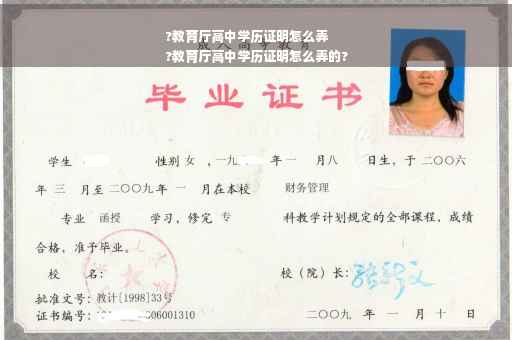 ?教育厅高中学历证明怎么弄
成人高等教育
?教育厅高中学历证明怎么弄的?
毕业证书
学生 性别 女 ,一九 年一 月八 日生,于二〇〇六
年 三 月至二〇〇九年 一 月在本校 财务管理
专业 函授 学习,修完 专 科教学计划规定的全部课程,成绩
合格,准予毕业。
校 名: 校(院)长:
批准文号:教计[1998]33号
证书编号: 06001310 二〇〇九 年 一 月 十 日